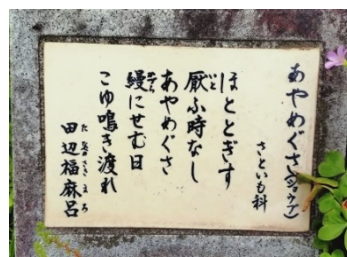 あやめぐさ(ショウブ)
さといも科
ほととぎす
厭ふ時なし
あやめぐさ
縵にせむ日
こゆ鳴き渡れ
田辺福麻呂